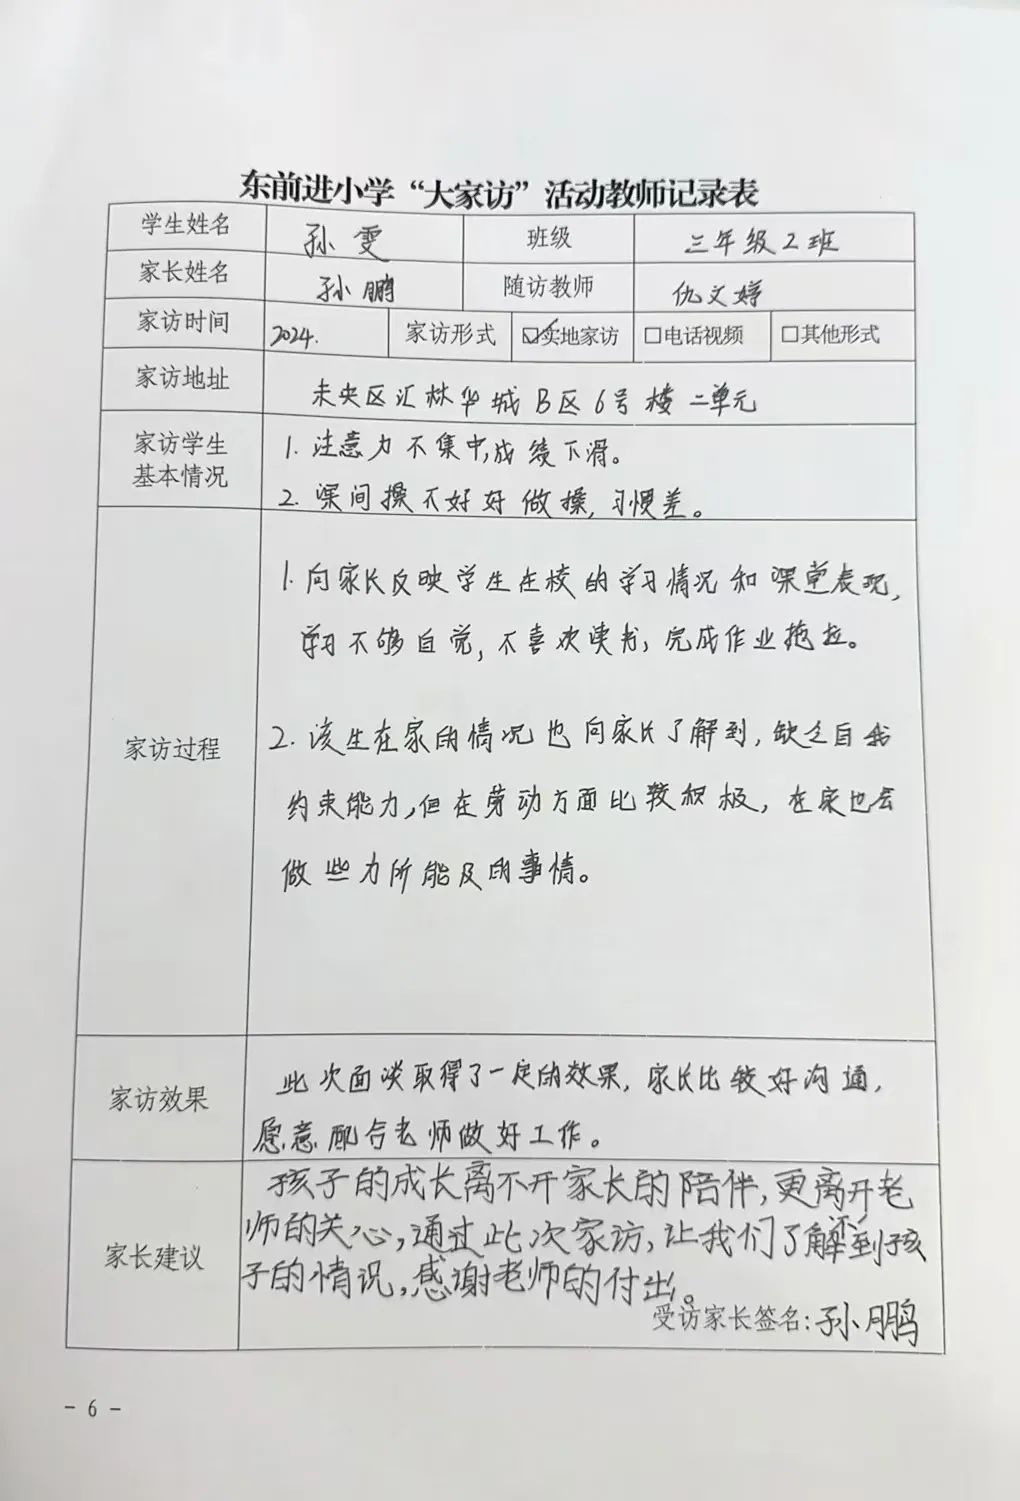 东前进小学“大家访”活动教师记录表
学生姓名 孙雯 班级 三年级2班
家长姓名 孙鹏 随访教师 仇文婷
家访时间 2024. 家访形式 ☑实地家访 □电话视频 □其他形式
家访地址 未央区汇林华城B区6号楼二单元
家访学生
基本情况
1. 注意力不集中,成绩下滑。
2. 课间操不好好做操,习惯差。
家访过程
1. 向家长反映学生在校的学习情况和课堂表现,
学习不够自觉,不喜欢读书,完成作业拖拉。
2. 该生在家的情况也向家长了解到,缺乏自我
约束能力,但在劳动方面比较积极,在家也会
做些力所能及的事情。
家访效果
此次面谈取得了一定的效果,家长比较好沟通,
愿意配合老师做好工作。
家长建议
孩子的成长离不开家长的陪伴,更离开老
师的关心,通过此次家访,让我们了解到孩
子的情况,感谢老师的付出。
受访家长签名:孙鹏
- 6 -